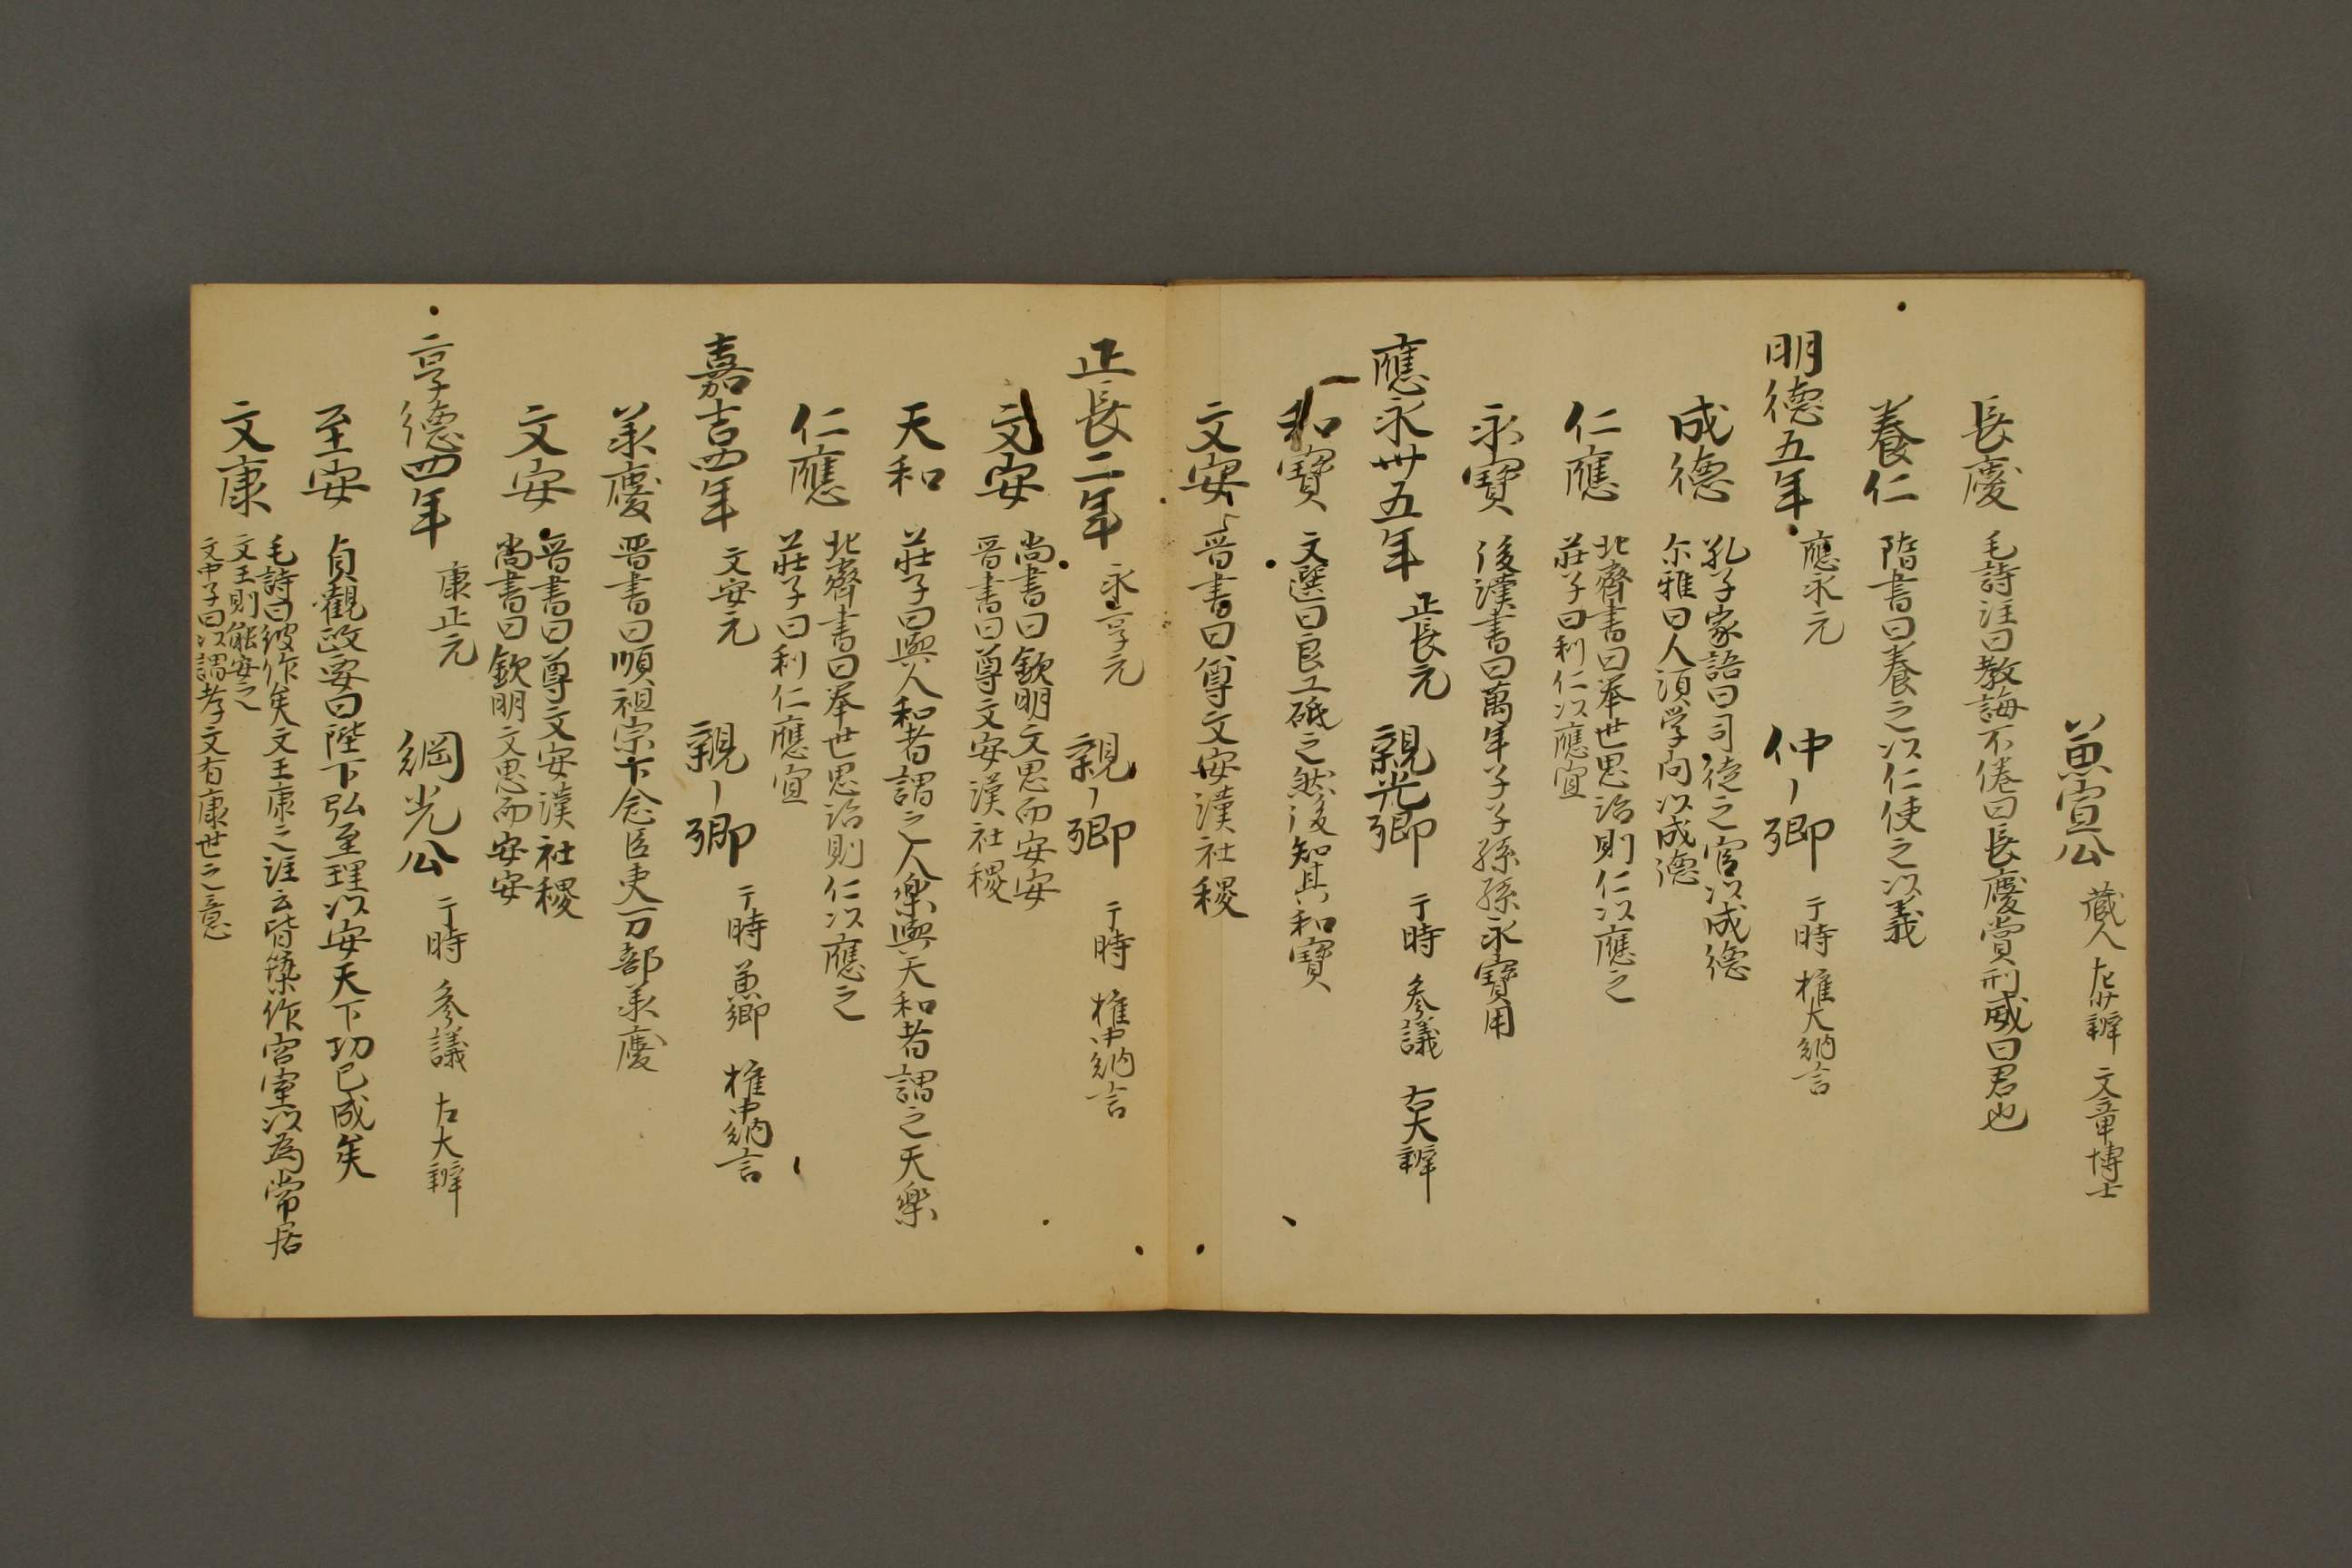 兼宣公 蔵人 左少辨 文章博士
長慶 毛詩注曰教誨不倦曰長慶賞刑威曰君也
養仁 隋書曰養之以仁使之以義
明德五年 應永元 仲ー卿 于時 權大納言
成德 孔子家語曰司徒之官以成德
尓雅曰人須学问以成德
仁應 北齊書曰举世思治則仁以應之
莊子曰利仁以應宜
永寶 後漢書曰萬年子子孫孫永寶用
應永卅五年 正長元 親光卿 于時 参議 右大辨
和寶 文選曰良工砥之然後知其和寶
文安 晉書曰尊文安漢社稷
正長二年 永享元 親ー卿 于時 權中納言
文安 尚書曰欽明文思而安安
晉書曰尊文安漢社稷
天和 莊子曰與人和者謂之人樂與天和者謂之天樂
仁應 北齊書曰举世思治則仁以應之
莊子曰利仁應宜
嘉吉四年 文安元 親ー卿 于時 兼卿 權中納言
承慶 晋書曰順祖宗下念臣吏万部承慶
文安 晉書曰尊文安漢社稷
尚書曰欽明文思而安安
享德四年 康正元 綱光公 于時 参議 右大辨
至安 貞觀政要曰陛下弘至理以安天下功已成矣
文康 毛詩曰彼作矣文王康之注云皆築作宮室以為常居
文王則能安之
文中子曰以謂孝文有康世之意